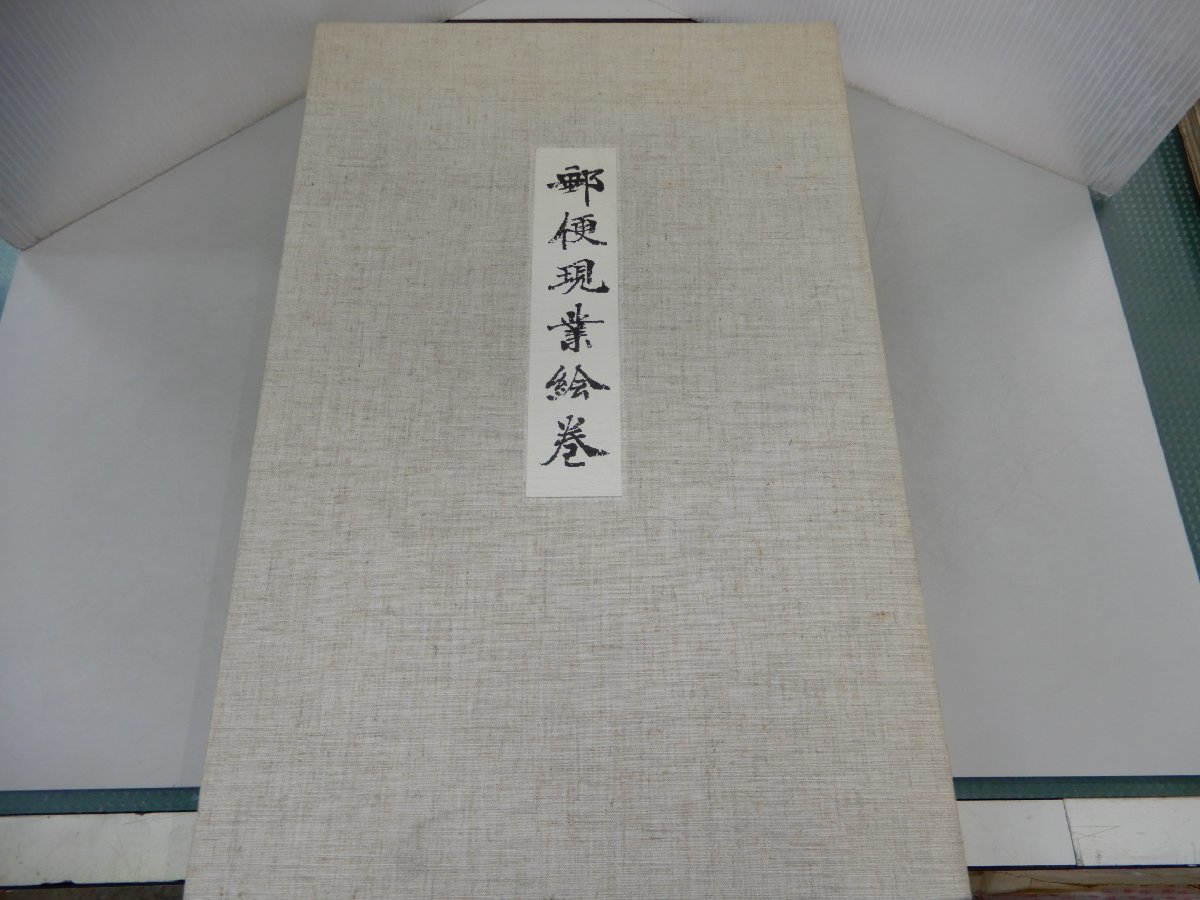 郵便現業絵巻